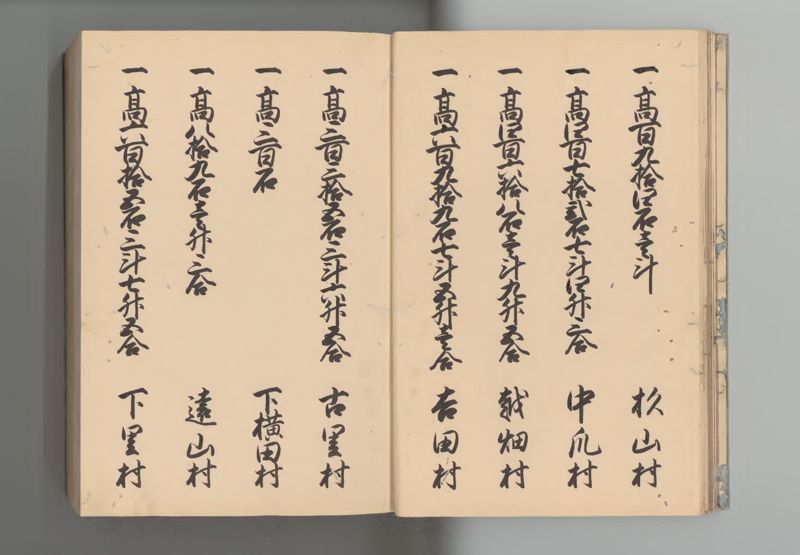 一高百九拾四石壱斗 杉山村
一高四百七拾弐石七斗四升二合 中爪村
一高四百六拾八石壱斗九升五合 越畑村
一高六百九拾九石七斗五升壱合 吉田村
一高二百二拾五石二斗六升五合 古里村
一高二百石 下横田村
一高八拾九石壱升二合 遠山村
一高六百拾五石二斗七升五合 下里村